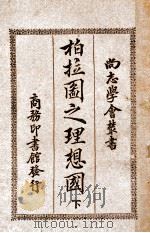 尚志學會叢書
柏拉圖之理想國
下
商務印書館發行